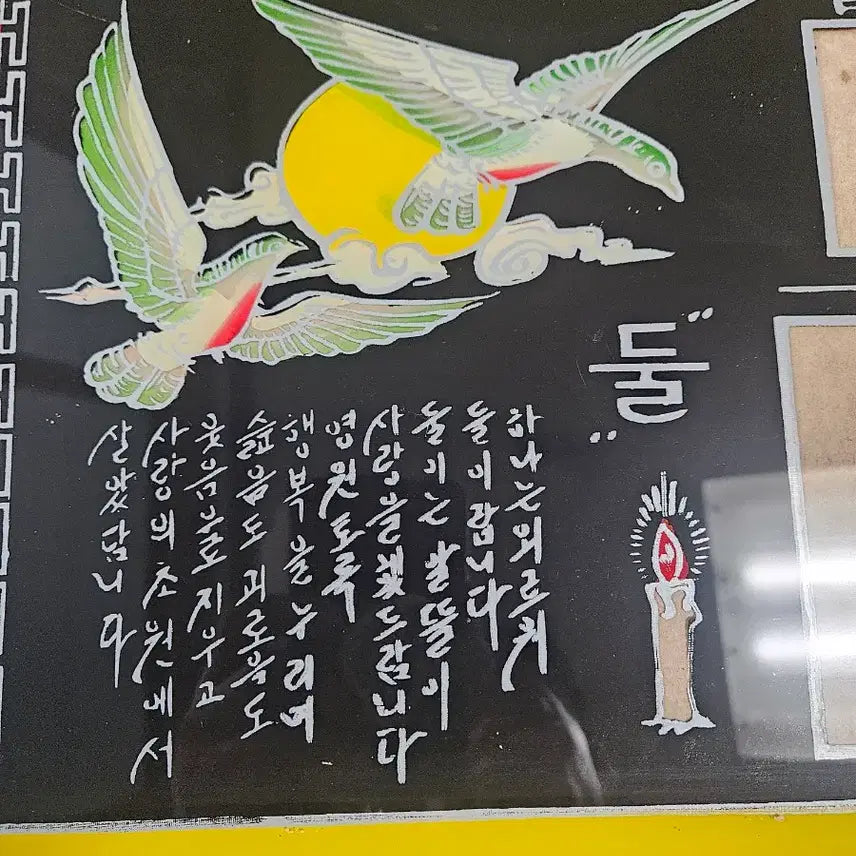 "둘"
하나는 외로워
둘이랍니다
둘이는 알뜰이
사랑을 맺드랍니다
영원토록
행복을 누리며
슬픔도 괴로움도
웃음으로 지우고
사랑의 초원에서
살았답니다